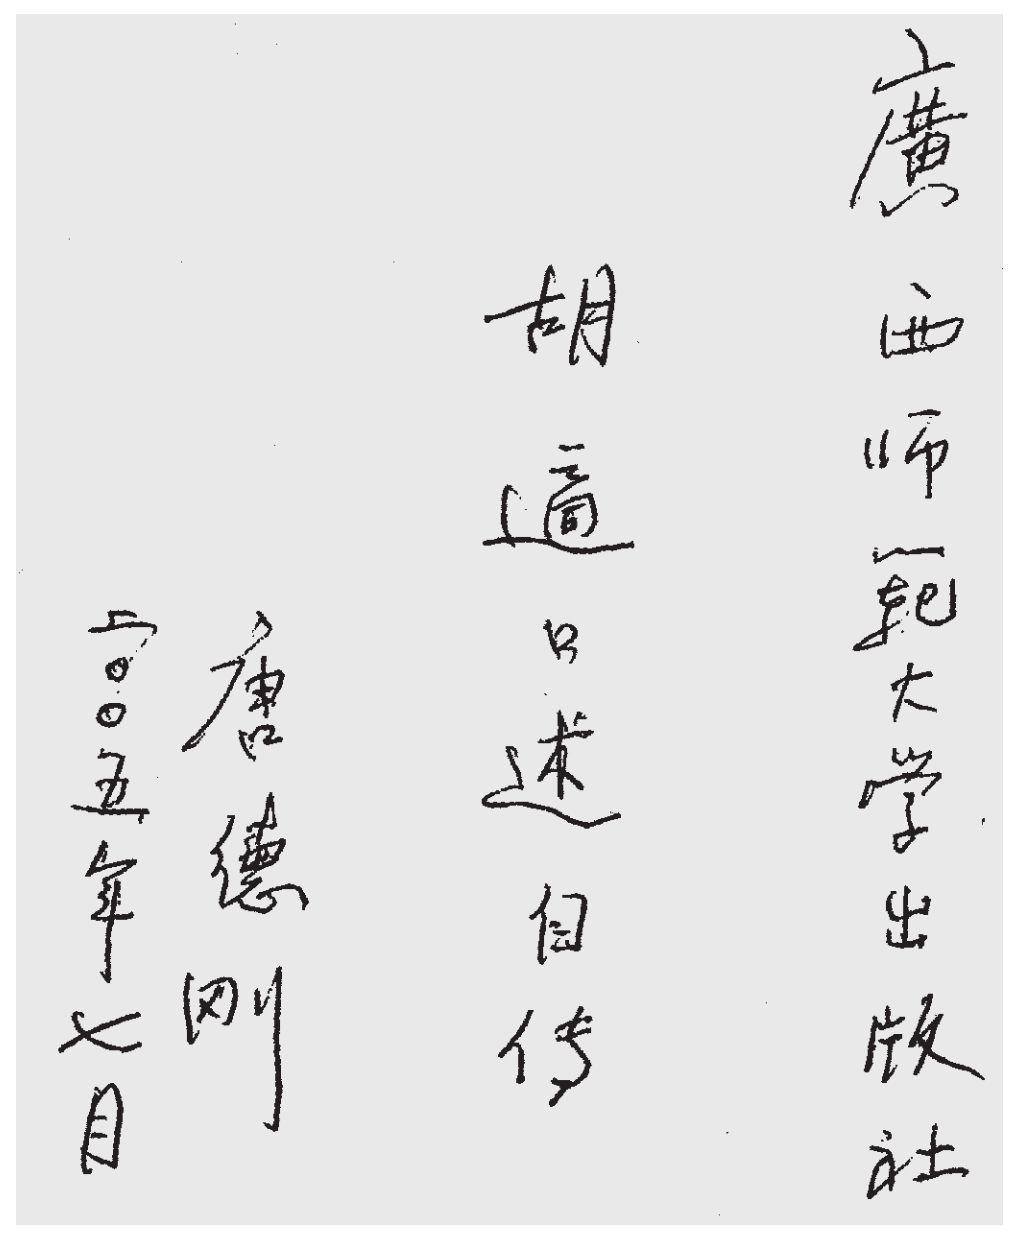 廣西师範大学出版社
胡適口述自传
唐德刚
二〇〇五年七月